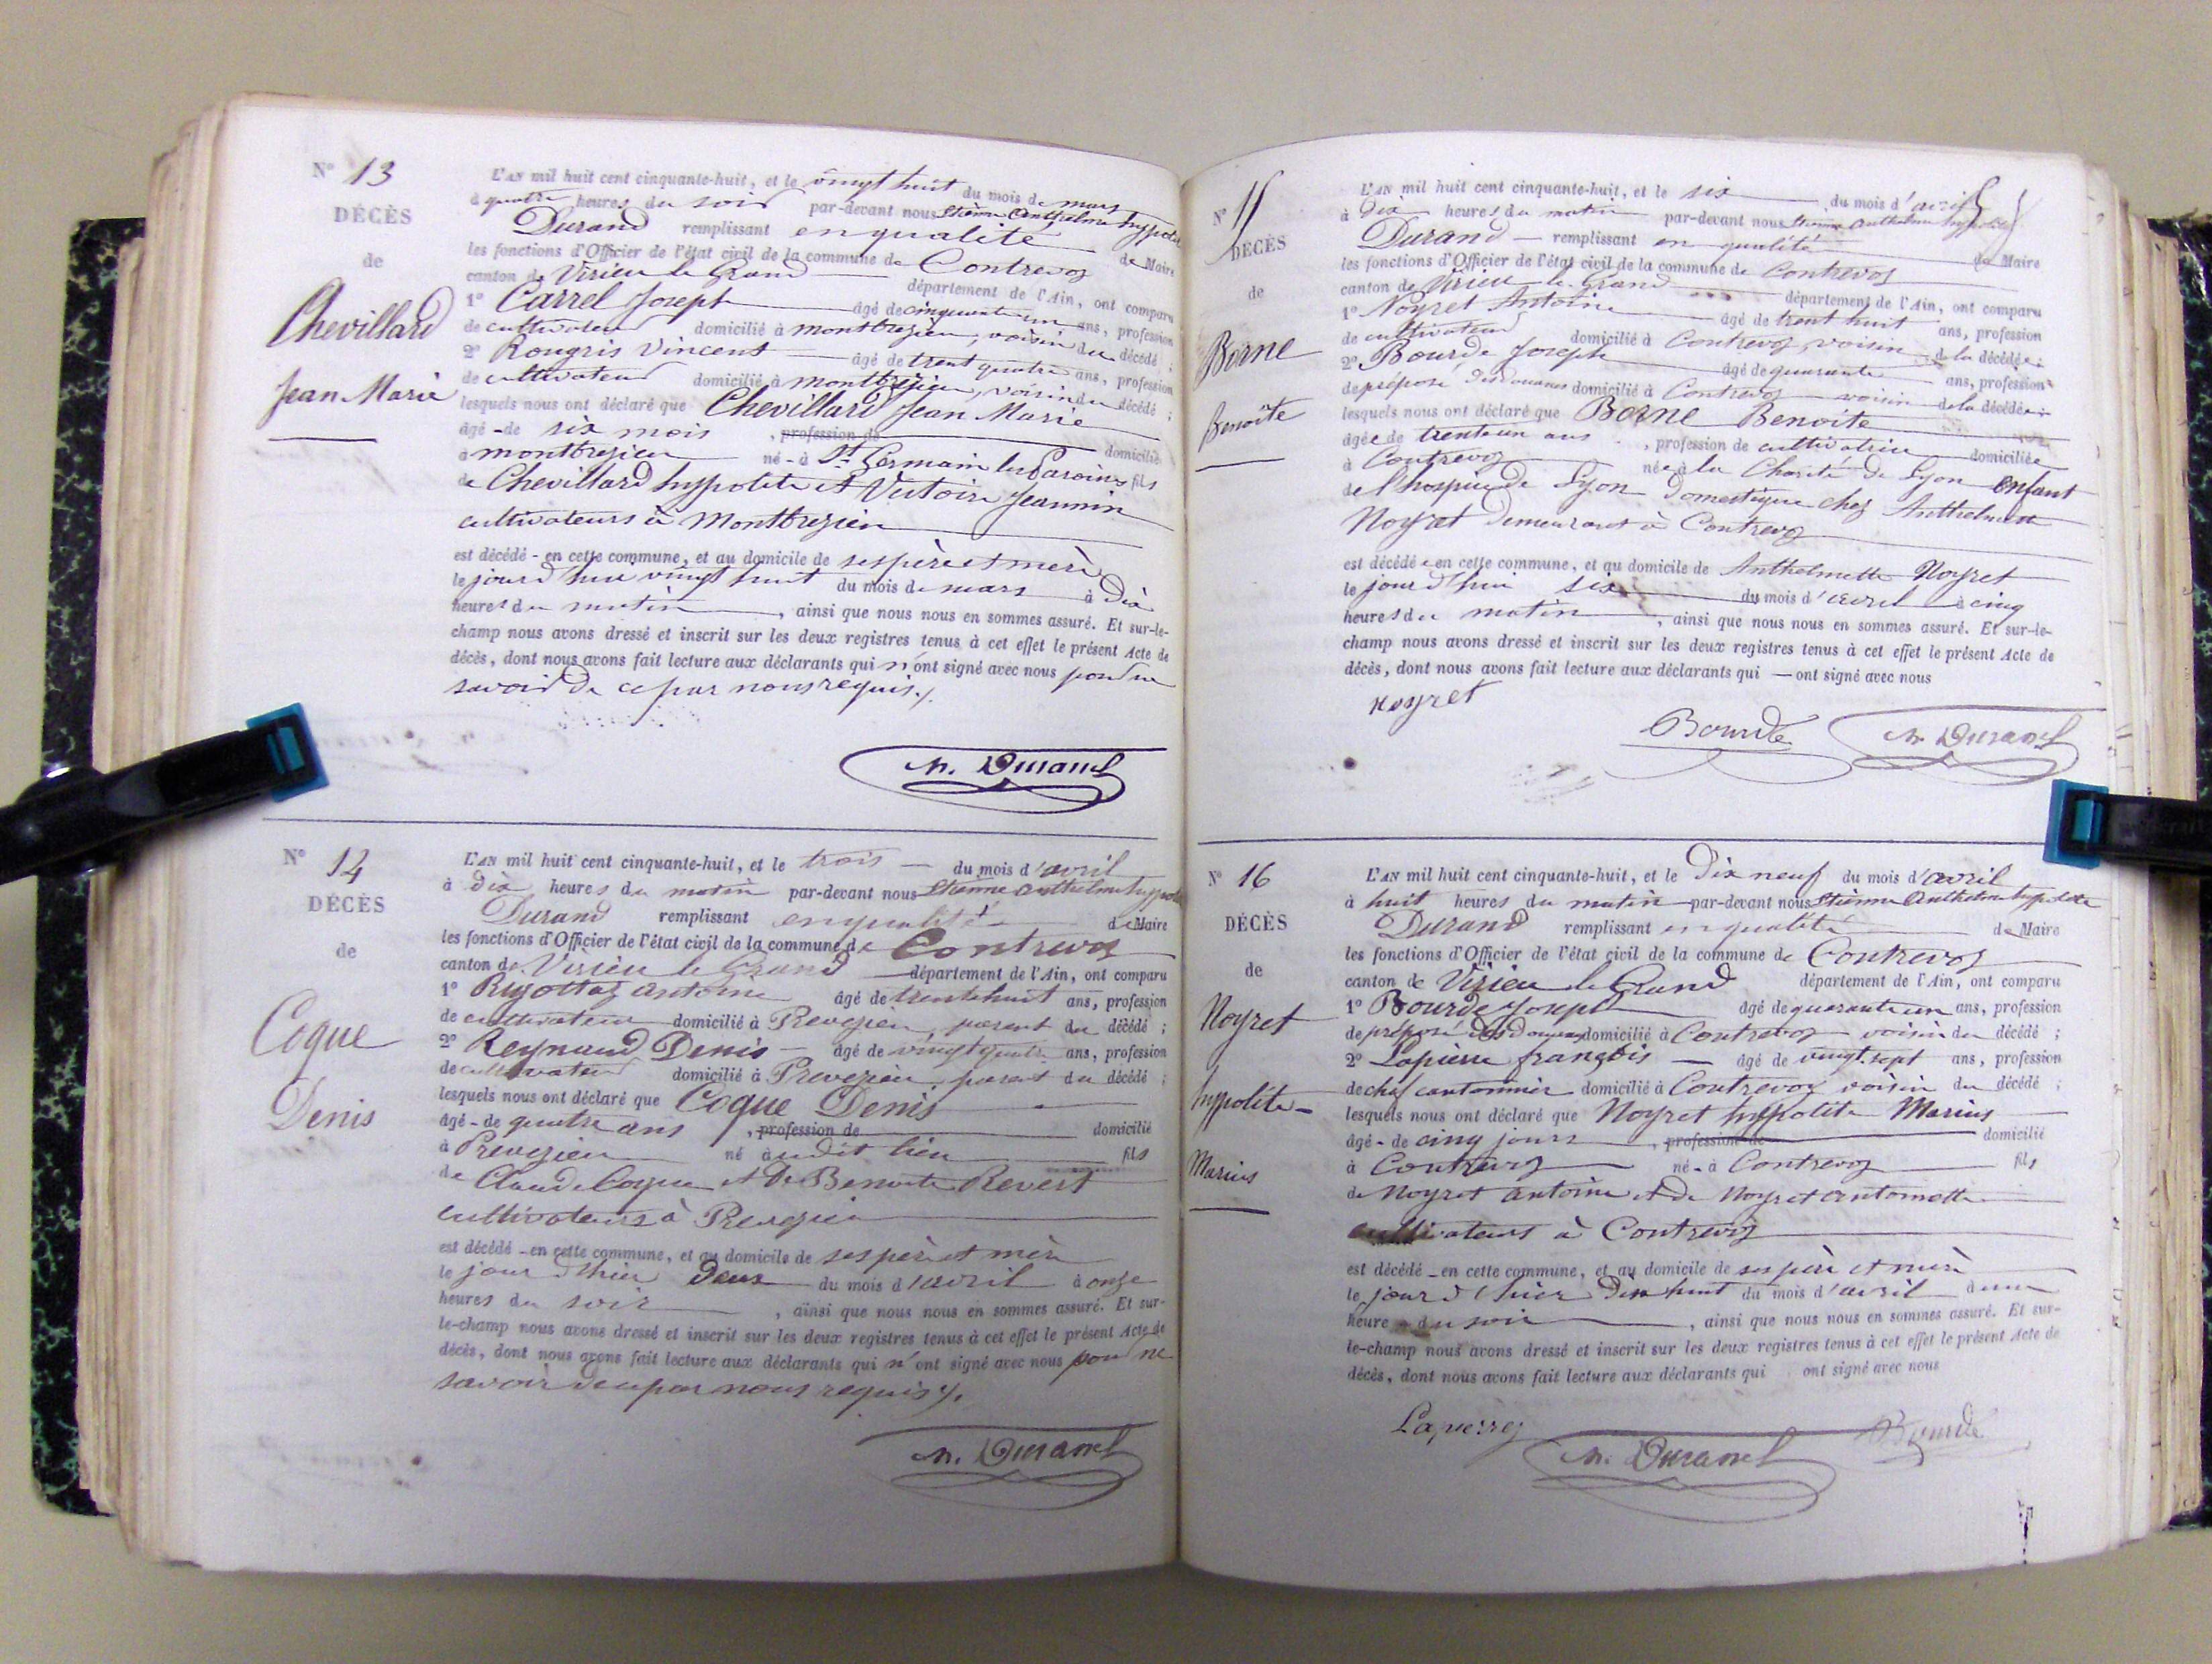 N° 13
DÉCÈS
de
Chevillard
Jean Marie
L'AN mil huit cent cinquante-huit, et le vingt huit du mois de mars
à quatre heures du soir par-devant nous Etienne Anthelme hypolite
Durand remplissant en qualité de Maire
les fonctions d'Officier de l'état civil de la commune de Contrevoz
canton de Virieu le Grand département de l'Ain, ont comparu
1° Carrel Joseph âgé de cinquante un ans, profession
de cultivateur domicilié à montbrezieu, voisin du décédé ;
2° Rougris Vincent âgé de trent quatre ans, profession
de cultivateur domicilié à montbrezieu, voisin du décédé ;
lesquels nous ont déclaré que Chevillard Jean Marie
âgé - de six mois , profession de domicilié
à montbrezieu né - à St Germain les Paroises fils
de Chevillard hypolite et Victoire Jeannin
cultivateurs à Montbrezieu
est décédé - en cette commune, et au domicile de ses père et mère
le jourd'hui vingt huit du mois de mars à dix
heures du matin , ainsi que nous nous en sommes assuré. Et sur-le-
champ nous avons dressé et inscrit sur les deux registres tenus à cet effet le présent Acte de
décès, dont nous avons fait lecture aux déclarants qui n'ont signé avec nous pour ne
savoir de ce par nous requis./.
h. Durand
N° 14
DÉCÈS
de
Coque
Denis
L'AN mil huit cent cinquante-huit, et le trois du mois d'avril
à dix heures du matin par-devant nous Etienne Anthelme hypolite
Durand remplissant en qualité de Maire
les fonctions d'Officier de l'état civil de la commune de Contrevoz
canton de Virieu le Grand département de l'Ain, ont comparu
1° Rujottaz antoine âgé de trente huit ans, profession
de cultivateur domicilié à Prevezieu, parent du décédé ;
2° Reynaud Denis âgé de vingt quatre ans, profession
de cultivateur domicilié à Prevezieu, parent du décédé ;
lesquels nous ont déclaré que Coque Denis
âgé - de quatre ans , profession de domicilié
à Prevezieu né à udit lieu fils
de Claude Coque et de Benoite Revert
cultivateurs à Prevezieu
est décédé - en cette commune, et au domicile de ses père et mère
le jour d'hier deux du mois d'avril à onze
heures du soir , ainsi que nous nous en sommes assuré. Et sur-
le-champ nous avons dressé et inscrit sur les deux registres tenus à cet effet le présent Acte de
décès, dont nous avons fait lecture aux déclarants qui n'ont signé avec nous pour ne
savoir de ce par nous requis ./.
h. Durand
N° 15
DÉCÈS
de
Borne
Benoîte
L'AN mil huit cent cinquante-huit, et le six du mois d'avril
à dix heures du matin par-devant nous Etienne Anthelme hypolite
Durand remplissant en qualité de Maire
les fonctions d'Officier de l'état civil de la commune de Contrevoz
canton de Virieu le Grand département de l'Ain, ont comparu
1° Noyret Antoine âgé de trent huit ans, profession
de cultivateur domicilié à Contrevoz, voisin de la décédée ;
2° Bourde Joseph âgé de quarante ans, profession
de préposé des douanes domicilié à Contrevoz voisin de la décédée ;
lesquels nous ont déclaré que Borne Benoite
âgée de trente un ans , profession de cultivatrice domiciliée
à Contrevoz née à la Charité de Lyon enfant
de l'hospice de Lyon domestique chez Anthelmette
Noyret demeurant à Contrevoz
est décédée en cette commune, et au domicile de Anthelmette Noyret
le jourd'hui six du mois d'avril à cinq
heures du matin , ainsi que nous nous en sommes assuré. Et sur-le-
champ nous avons dressé et inscrit sur les deux registres tenus à cet effet le présent Acte de
décès, dont nous avons fait lecture aux déclarants qui — ont signé avec nous
noyret
Bourde h. Durand
N° 16
DÉCÈS
de
Noyret
hypolite
Marius
L'AN mil huit cent cinquante-huit, et le dix neuf du mois d'avril
à huit heures du matin par-devant nous Etienne Anthelme hypolite
Durand remplissant en qualité de Maire
les fonctions d'Officier de l'état civil de la commune de Contrevoz
canton de Virieu le Grand département de l'Ain, ont comparu
1° Bourde Joseph âgé de quarante un ans, profession
de préposé des douanes domicilié à Contrevoz voisin du décédé ;
2° Lapierre françois âgé de vingt sept ans, profession
de chef cantonnier domicilié à Contrevoz voisin du décédé ;
lesquels nous ont déclaré que Noyret hypolite Marius
âgé - de cinq jours , profession de domicilié
à Contrevoz né - à Contrevoz fils
de Noyret antoine et de Noyret antoinette
cultivateurs à Contrevoz
est décédé - en cette commune, et au domicile de ses père et mère
le jour d'hier dix huit du mois d'avril à une
heure du soir , ainsi que nous nous en sommes assuré. Et sur-
le-champ nous avons dressé et inscrit sur les deux registres tenus à cet effet le présent Acte de
décès, dont nous avons fait lecture aux déclarants qui ont signé avec nous
Lapierre
h. Durand Bourde